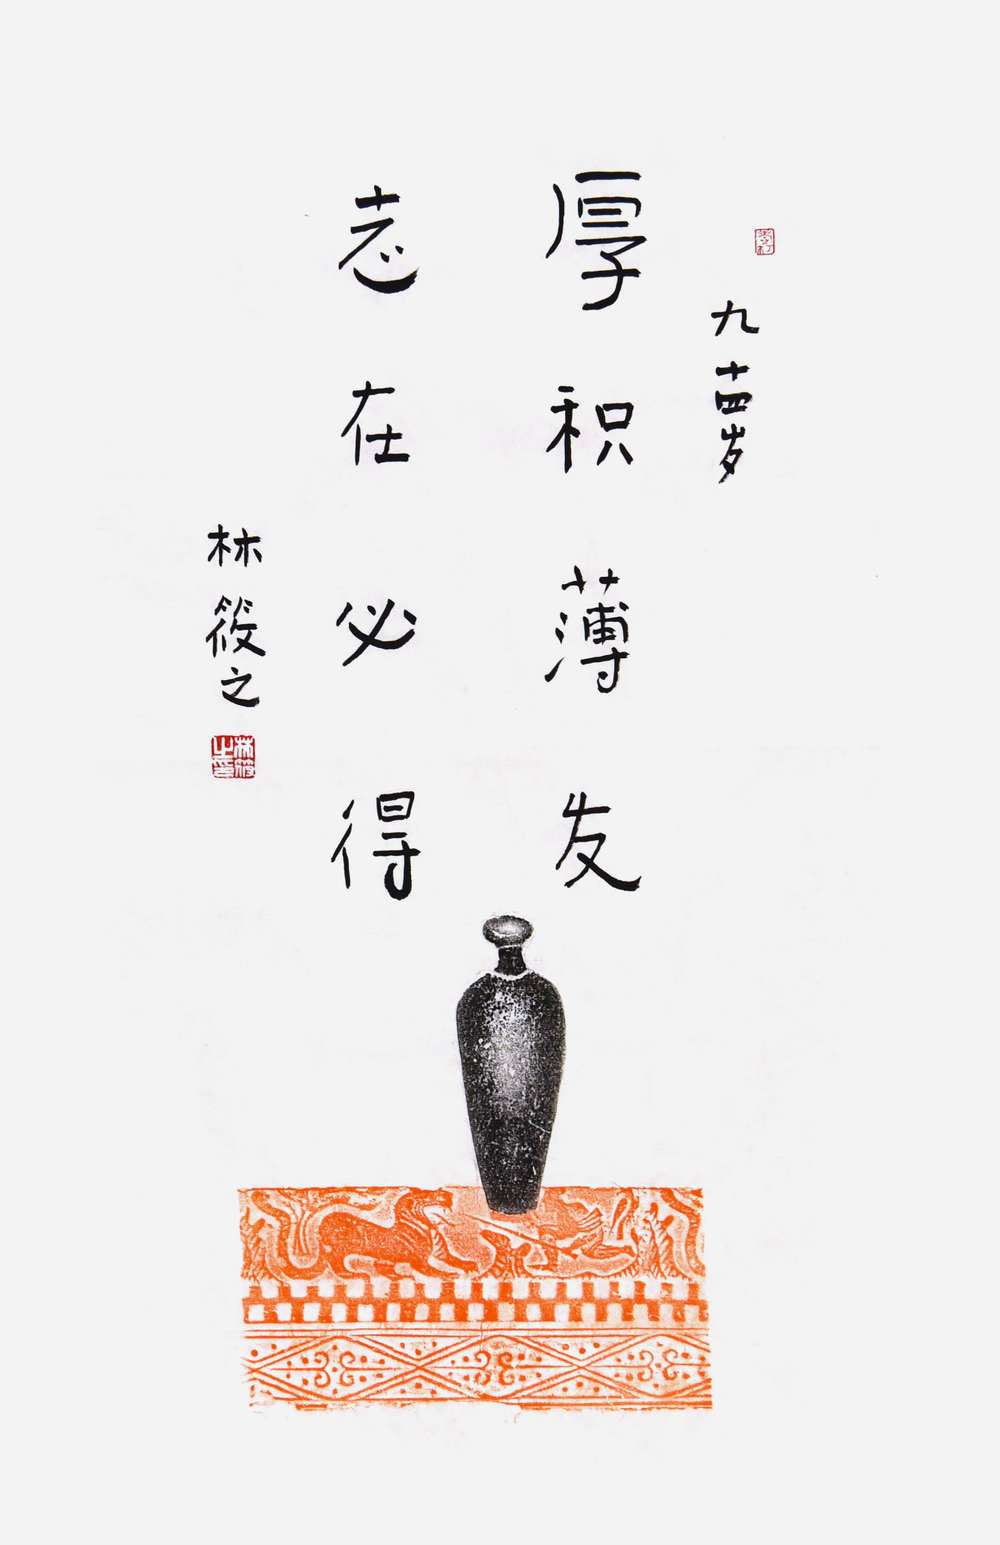 九十四岁
厚积薄发
志在必得
林筱之
林筱之印